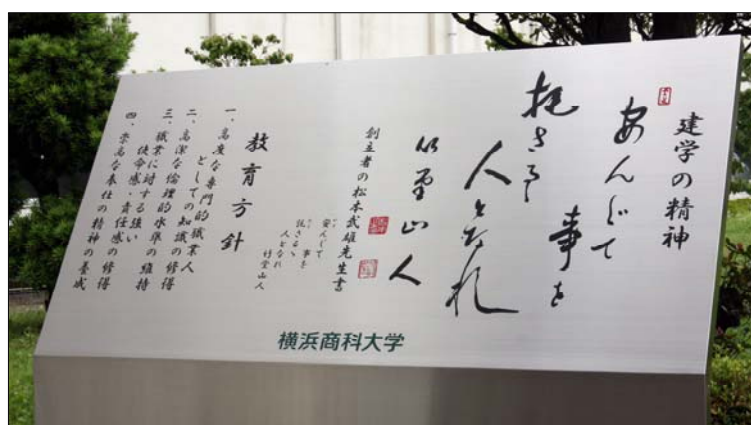 建学の精神
安んじて
事を
托さるゝ
人となれ
竹堂山人
創立者の松本武雄先生書
安んじて
事を
託さるゝ
人となれ
竹堂山人
教育方針
一、高度な専門的職業人
としての知識の修得
二、高潔な倫理的水準の維持
三、職業に対する強い
使命感・責任感の修得
四、崇高な奉仕の精神の養成
横浜商科大学